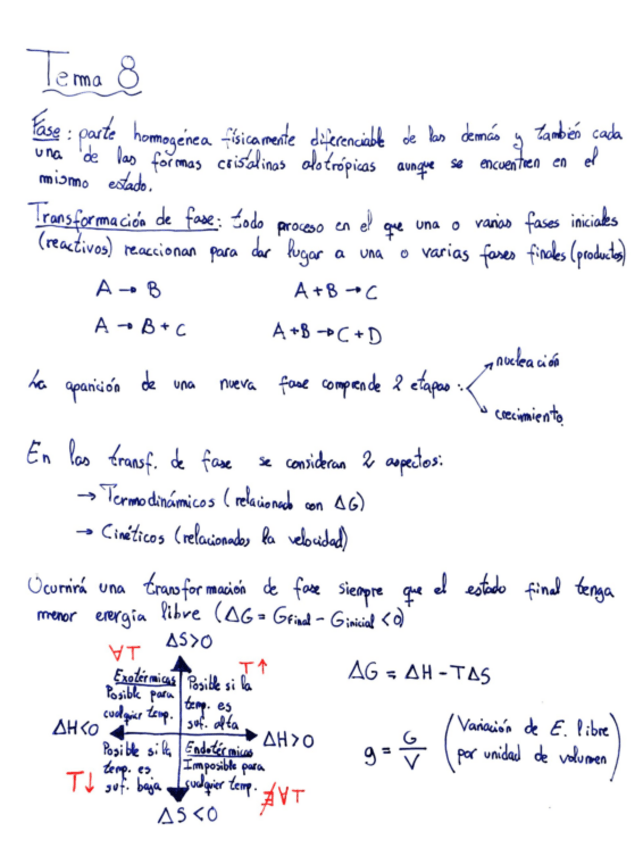 Tema 8
Fase: parte homogénea físicamente diferenciable de las demás y también cada
una de las formas cristalinas alotrópicas aunque se encuentren en el
mismo estado.
Transformación de fase: todo proceso en el que una o varias fases iniciales
(reactivos) reaccionan para dar lugar a una o varias fases finales (productos)
A → B
A + B → C
A → B + C
A + B → C + D
La aparición de una nueva fase comprende 2 etapas:
nucleación
crecimiento
En las transf. de fase se consideran 2 aspectos:
→ Termodinámicos (relacionado con ΔG)
→ Cinéticos (relacionados la velocidad)
Ocurrirá una transformación de fase siempre que el estado final tenga
menor energía libre (ΔG = Gfinal - Ginicial < 0)
ΔS>0
∀T
T↑
Exotérmicas
Posible para
cualquier temp.
Posible si la
temp. es
suf. alta
ΔH<0
ΔH>0
Posible si la
temp. es
suf. baja
T↓
Endotérmicas
Imposible para
cualquier temp.
∄∀T
ΔS<0
ΔG = ΔH - TΔS
g = G/V (Variación de E. libre
por unidad de volumen)